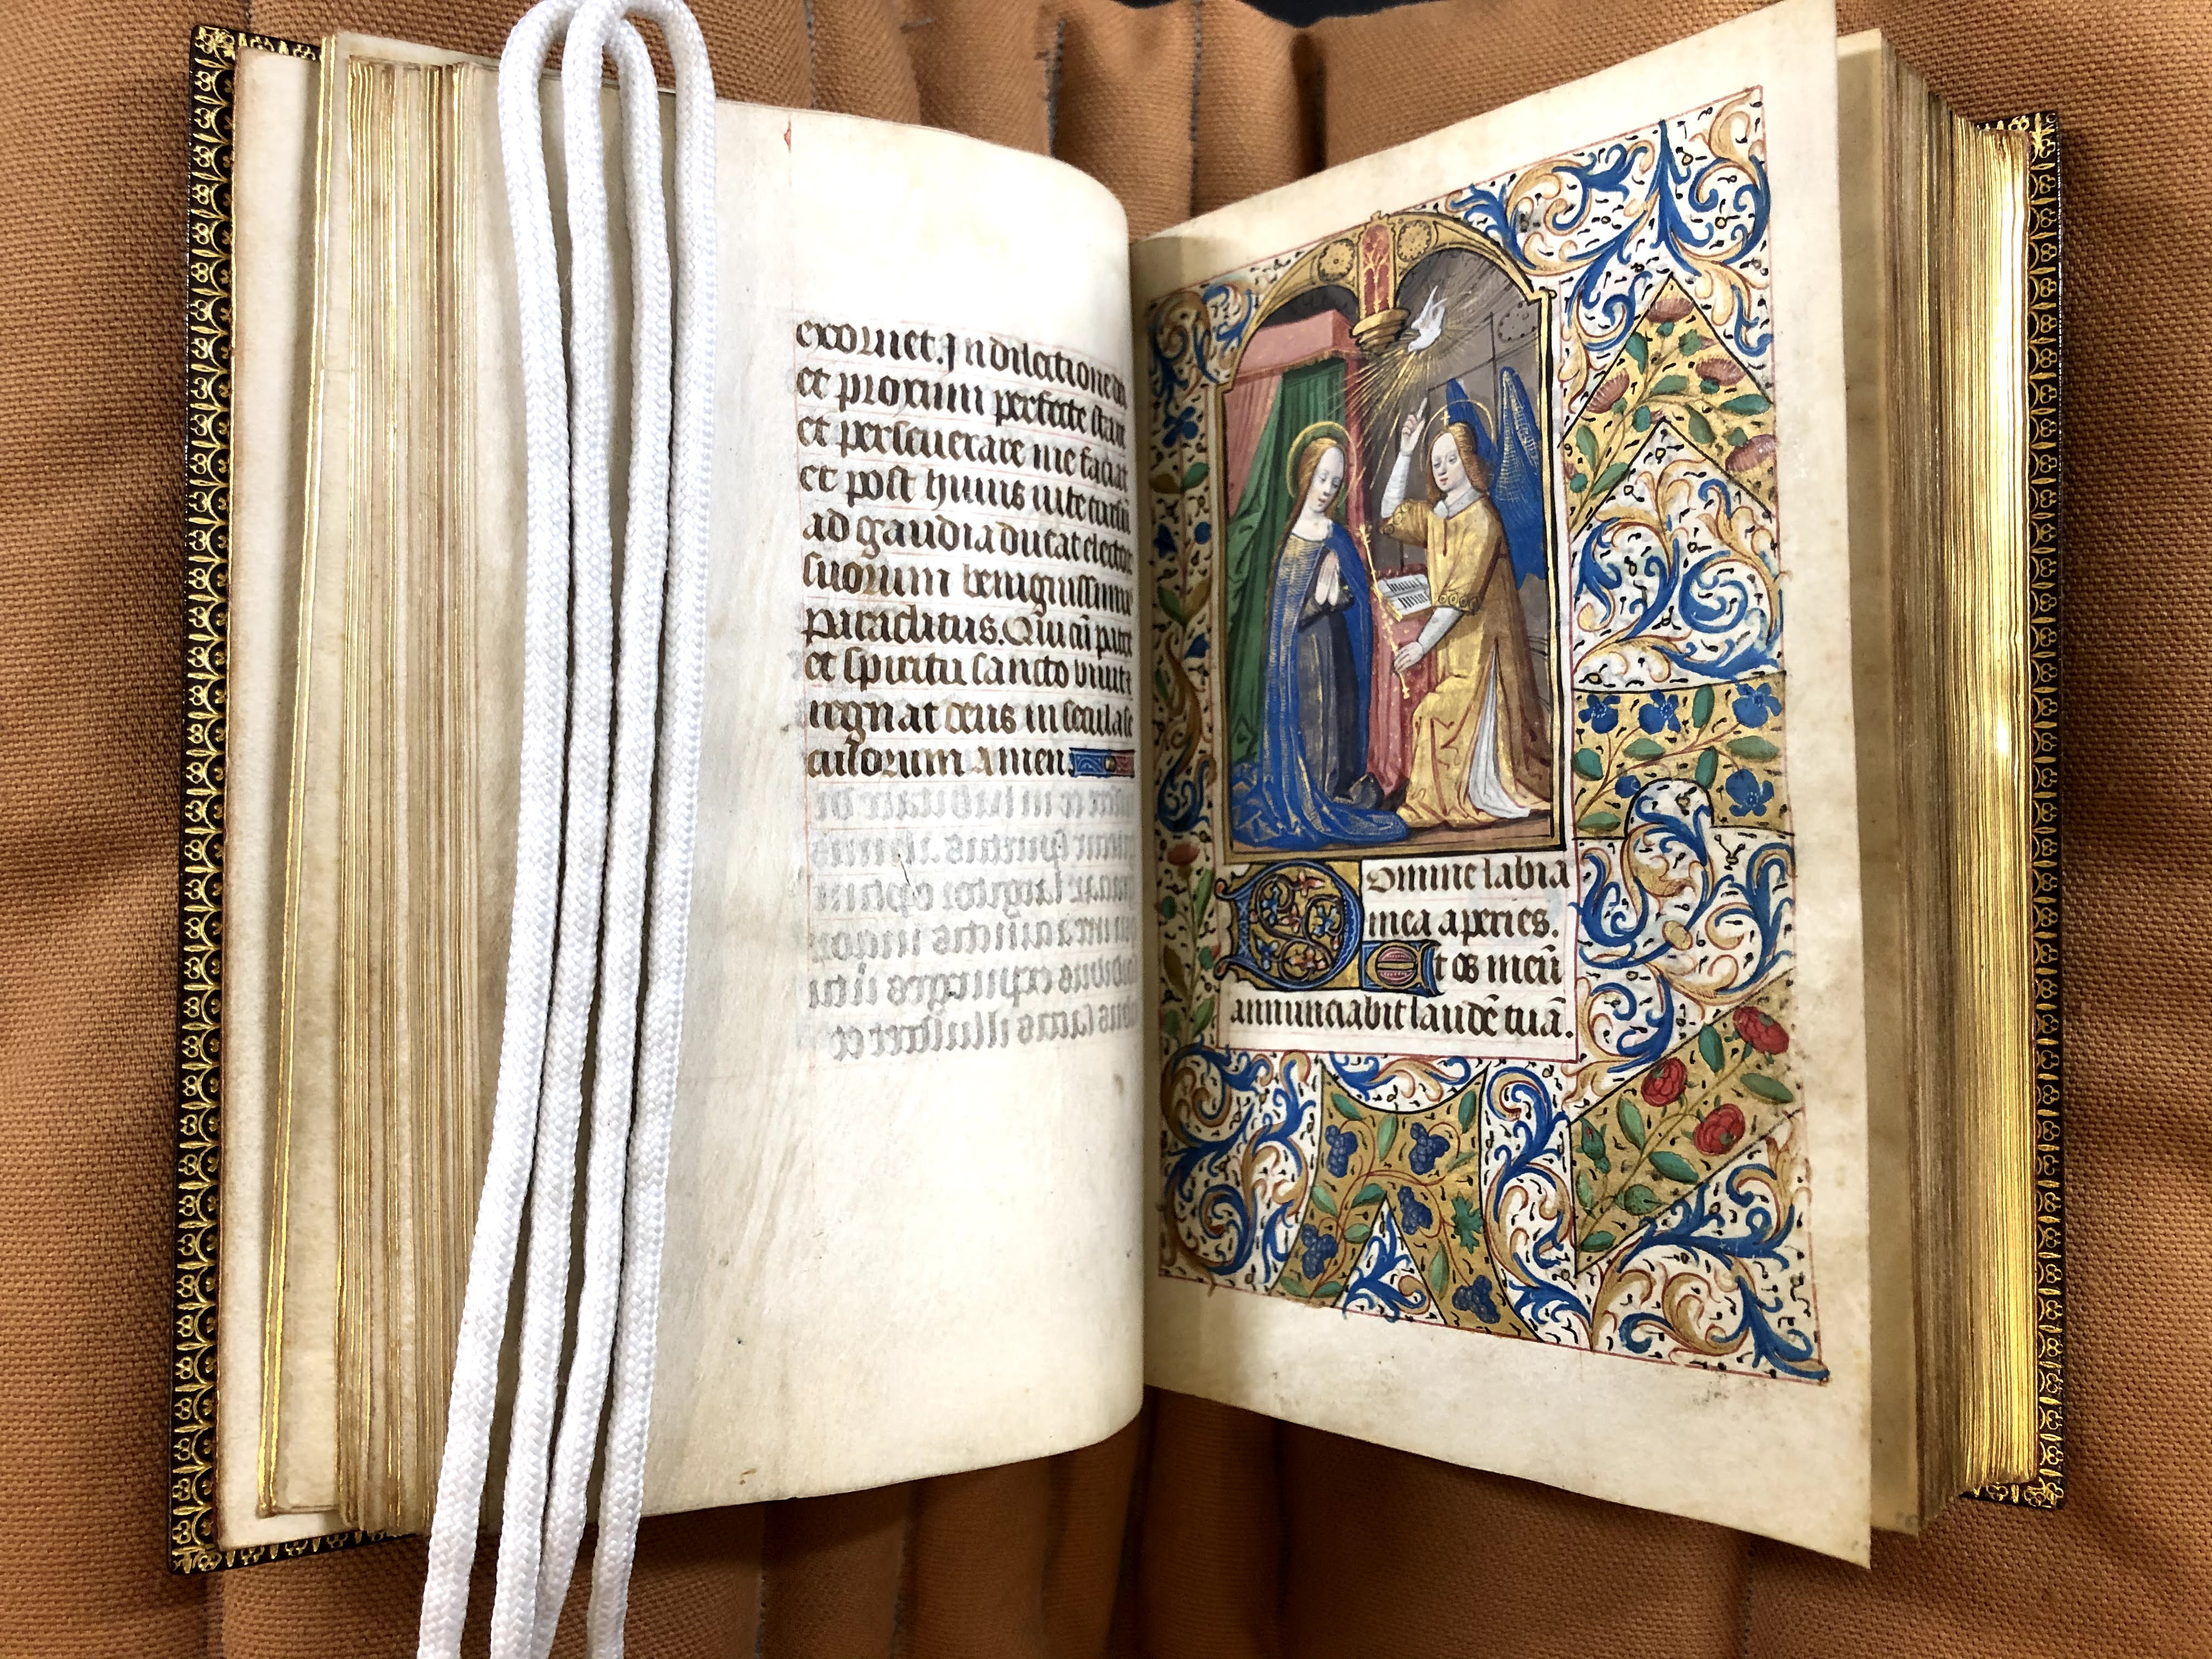 exornet. In dilectione dei
et proximi perfecte stare
et perseuerare me faciat
et post huius uite cursū
ad gaudia ducat electorū
suorum benignissimus
paraclitus. Qui cū patre
et spiritu sancto viuit et
regnat deus in secula se
culorum amen.
Domine labia
mea aperies.
Et os meū
annunciabit laudē tuā.